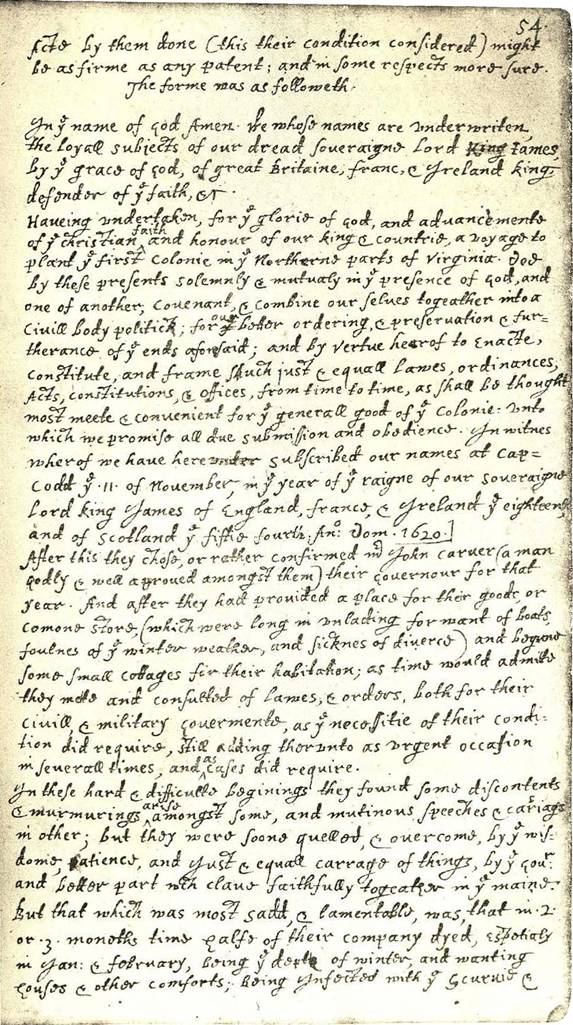 54.
Acte by them done (this their condition considered) might
be as firme as any patent; and in some respects more sure.
The forme was as followeth.
In yͤ name of God Amen. We whose names are underwriten,
the loyall subjects of our dread soveraigne Lord King James,
by yͤ grace of God, of great Britaine, franc, & Ireland king,
defender of yͤ faith, &c.
Haveing undertaken, for yͤ glorie of God, and advancemente
of yͤ christian faith and honour of our king & countrie, a voyage to
plant yͤ first colonie in yͤ Northerne parts of Virginia. Doe
by these presents solemnly & mutualy in yͤ presence of God, and
one of another, covenant, & combine our selves togeather into a
Civill body politick; for our better ordering, & preservation & fur=
therance of yͤ ends aforesaid; and by vertue hearof to Enacte,
constitute, and frame shuch just & equall Lawes, ordinances,
Acts, constitutions, & offices, from time to time, as shall be thought
most meete & convenient for yͤ generall good of yͤ colonie: unto
which we promise all due submission and obedience. In witnes
wherof we have hereunder subscribed our names at Cap=
Codd yͤ .11. of November, in yͤ year of yͤ raigne of our soveraigne
Lord king James of England, france, & Ireland yͤ eighteenth
and of Scotland yͤ fiftie fourth. Anͦ: Dom. 1620.]
After this they chose, or rather confirmed mͬ John Carver (a man
godly & well aproved amongst them) their governour for that
year. And after they had provided a place for their goods, or
comone store, (which were long in unlading for want of boats,
foulnes of yͤ winter weather, and sicknes of diverce) and begune
some small cottages for their habitation; as time would admitte
they mette and consulted of lawes, & orders, both for their
civill & military govermente, as yͤ necessitie of their condi=
tion did require, still adding therunto as urgent occasion
in severall times, and as cases did require.
In these hard & difficulte beginings they found some discontents
& murmurings arise amongst some, and mutinous speeches & cariags
in other; but they were soone quelled, & overcome, by yͤ wis=
dome, patience, and just & equall carrage of things, by yͤ Govͬ
and better part wch clave faithfully togeather in yͤ maine.
But that which was most sadd, & lamentable, was, that in .2.
or .3. moneths time halfe of their company dyed, espetialy
in Jan: & february, being yͤ depth of winter, and wanting
houses & other comforts; being Infected with yͤ Scurvie &